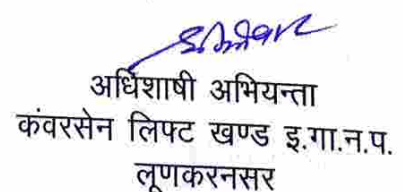 अधिशाषी अभियन्ता
कंवरसेन लिफ्ट खण्ड इ.गा.न.प.
लूणकरनसर